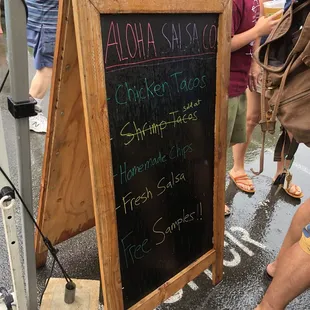 ALOHA SALSA CO
Chicken Tacos
Shrimp Tacos
sold out
Homemade Chips
Fresh Salsa
Free Samples!!